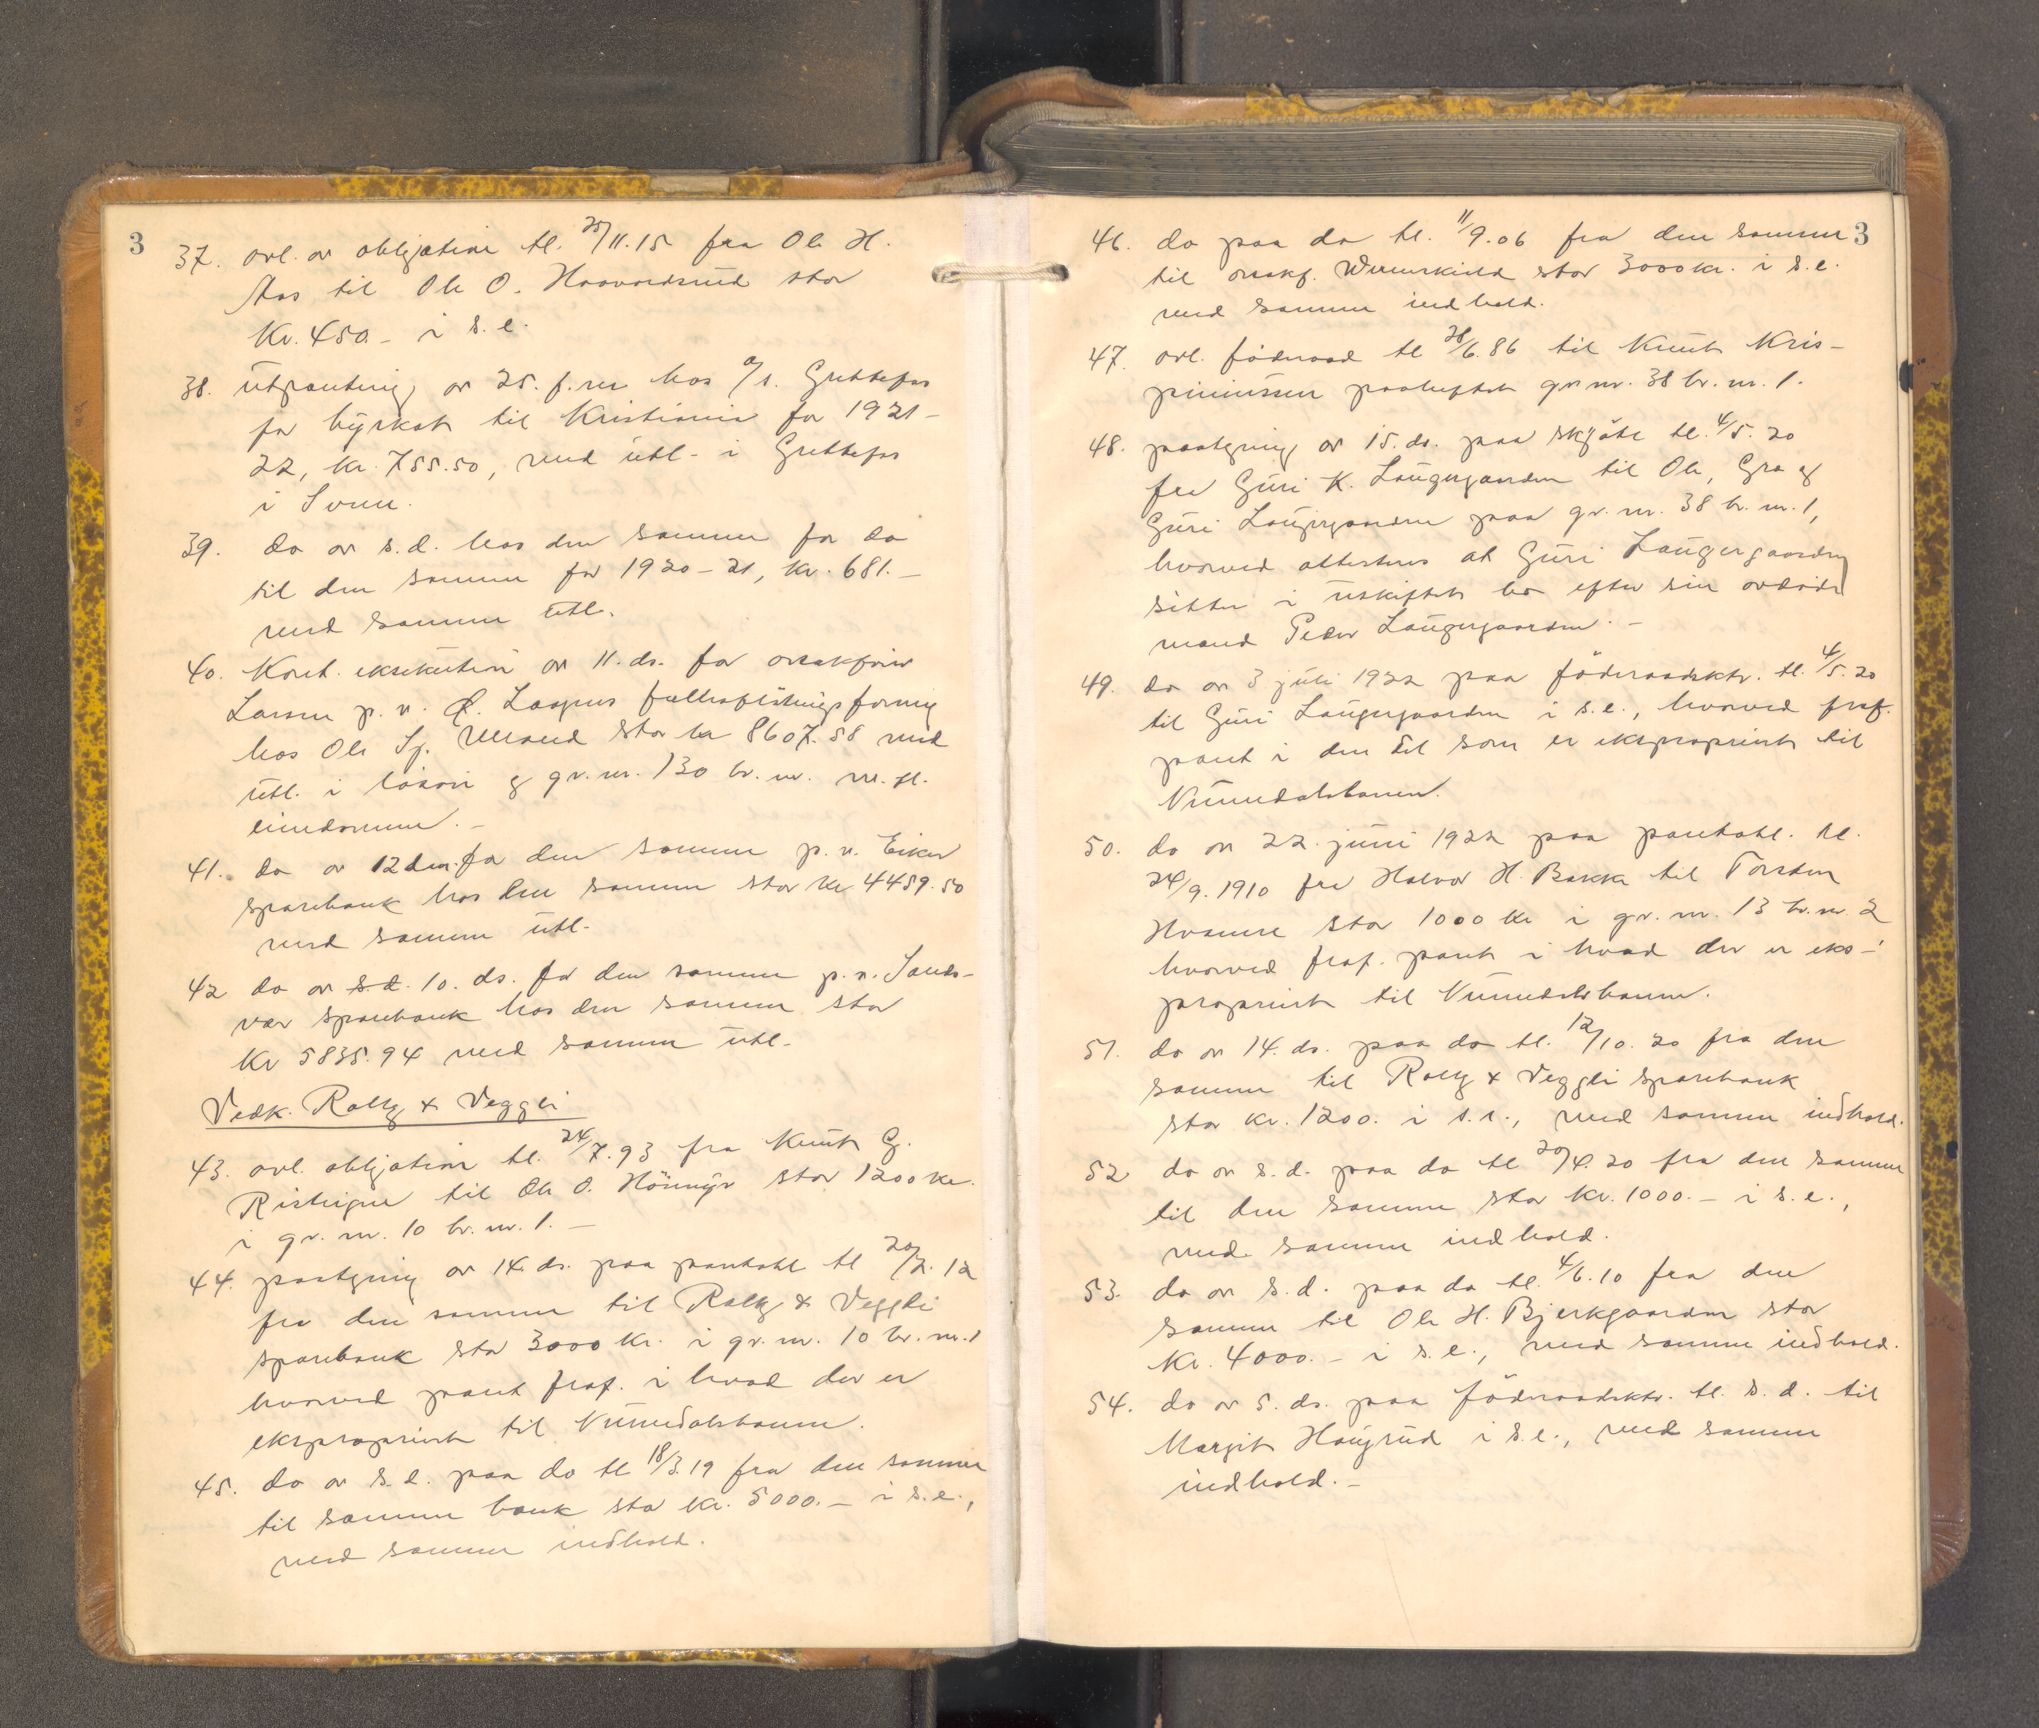 3
37. avl. av obligation tl. 25/11.15 fra Ole H.
Aas til Ole O. Haavardsrud stor
Kr. 450.- i s.e.
38. utpanting av 25. f.m. hos a/s. Gruttefos
for byskat til Kristiania for 1921-
22, kr. 755.50, med utl. i Gruttefos
i Svene.
39. do av s.d. hos den samme for do
til den samme for 1920-21, kr. 681.-
med samme utl.
40. Konst. eksekution av 11. ds. for orsakfører
Larsen p.v. fællesslåtningsforening
hos Ole Sj. stor kr 8607.58 med
utl. i løsøre og gr.nr. 130 br.nr. m.fl.
eiendomme.-
41. do av 12 den. for den samme p.v. Eiker
sparebank hos den samme stor Kr 4459.50
med samme utl.-
42 do av s.d. 10. ds. for den samme p.v. Sands-
vær sparebank hos den samme stor
Kr 5835.94 med samme utl.-
Vedk. Rollag & Veggli
43. avl. obligation tl. 24/7.93 fra Knut G.
Risteigne til Ole O. Hönmyr stor 1200 kr.
i gr.nr. 10 br.nr. 1.-
44. paategning av 14. ds. paa pantobl tl 20/2.12
fra den samme til Rollag & Veggli
sparebank stor 3000 kr. i gr.nr. 10 br.nr.1
hvorved pant fraf. i hvad der er
ekspropriert til Numedalsbanen.
45. do av s.d. paa do tl 18/3.19 fra den samme
til samme bank stor kr. 5000.- i s.e.,
med samme indhold.
3
46. do paa do tl. 11/9.06 fra den samme
til orsakf. Wererskiold stor 3000 kr. i s.e.
med samme indhold.
47. avl. føderaad tl 28/6.86 til Knut Kris-
piniussen paaheftet gr.nr. 38 br.nr. 1.
48. paategning av 15. ds. paa skjöte tl. 4/5.20
fra Guri K. Laugergaarden til Ole, Gro og
Guri Laugergaarden paa gr.nr. 38 br.nr. 1,
hvorved attesteres at Guri Laugergaarden
sitter i uskiftet bo efter sin avdøde
mand Peder Laugergaarden.-
49. do av 3 juli 1922 paa föderaadsktr. tl. 4/5.20
til Guri Laugergaarden i s.e., hvorved fraf.
pant i den del som er ekspropriert til
Numedalsbanen.
50. do av 22. juni 1922 paa pantobl. tl.
24/9.1910 fra Halvor H. Bakke til Torsten
Hvamre stor 1000 kr i gr.nr. 13 br.nr. 2
hvorved fraf. pant i hvad der er eks-
propriert til Numedalsbanen.
51. do av 14. ds. paa do tl. 12/10.20 fra den
samme til Rollag & Veggli sparebank
stor kr. 1200. i s.e., med samme indhold.
52 do av s.d. paa do tl 20/4.20 fra den samme
til den samme stor kr. 1000.- i s.e.,
med samme indhold.
53. do av s.d. paa do tl. 4/6.10 fra den
samme til Ole H. Bjerkgaarden stor
Kr. 4000.- i s.e., med samme indhold.
54. do av 5. ds. paa föderaadsktr. tl. s.d. til
Margit Haugrud i s.e., med samme
indhold.-